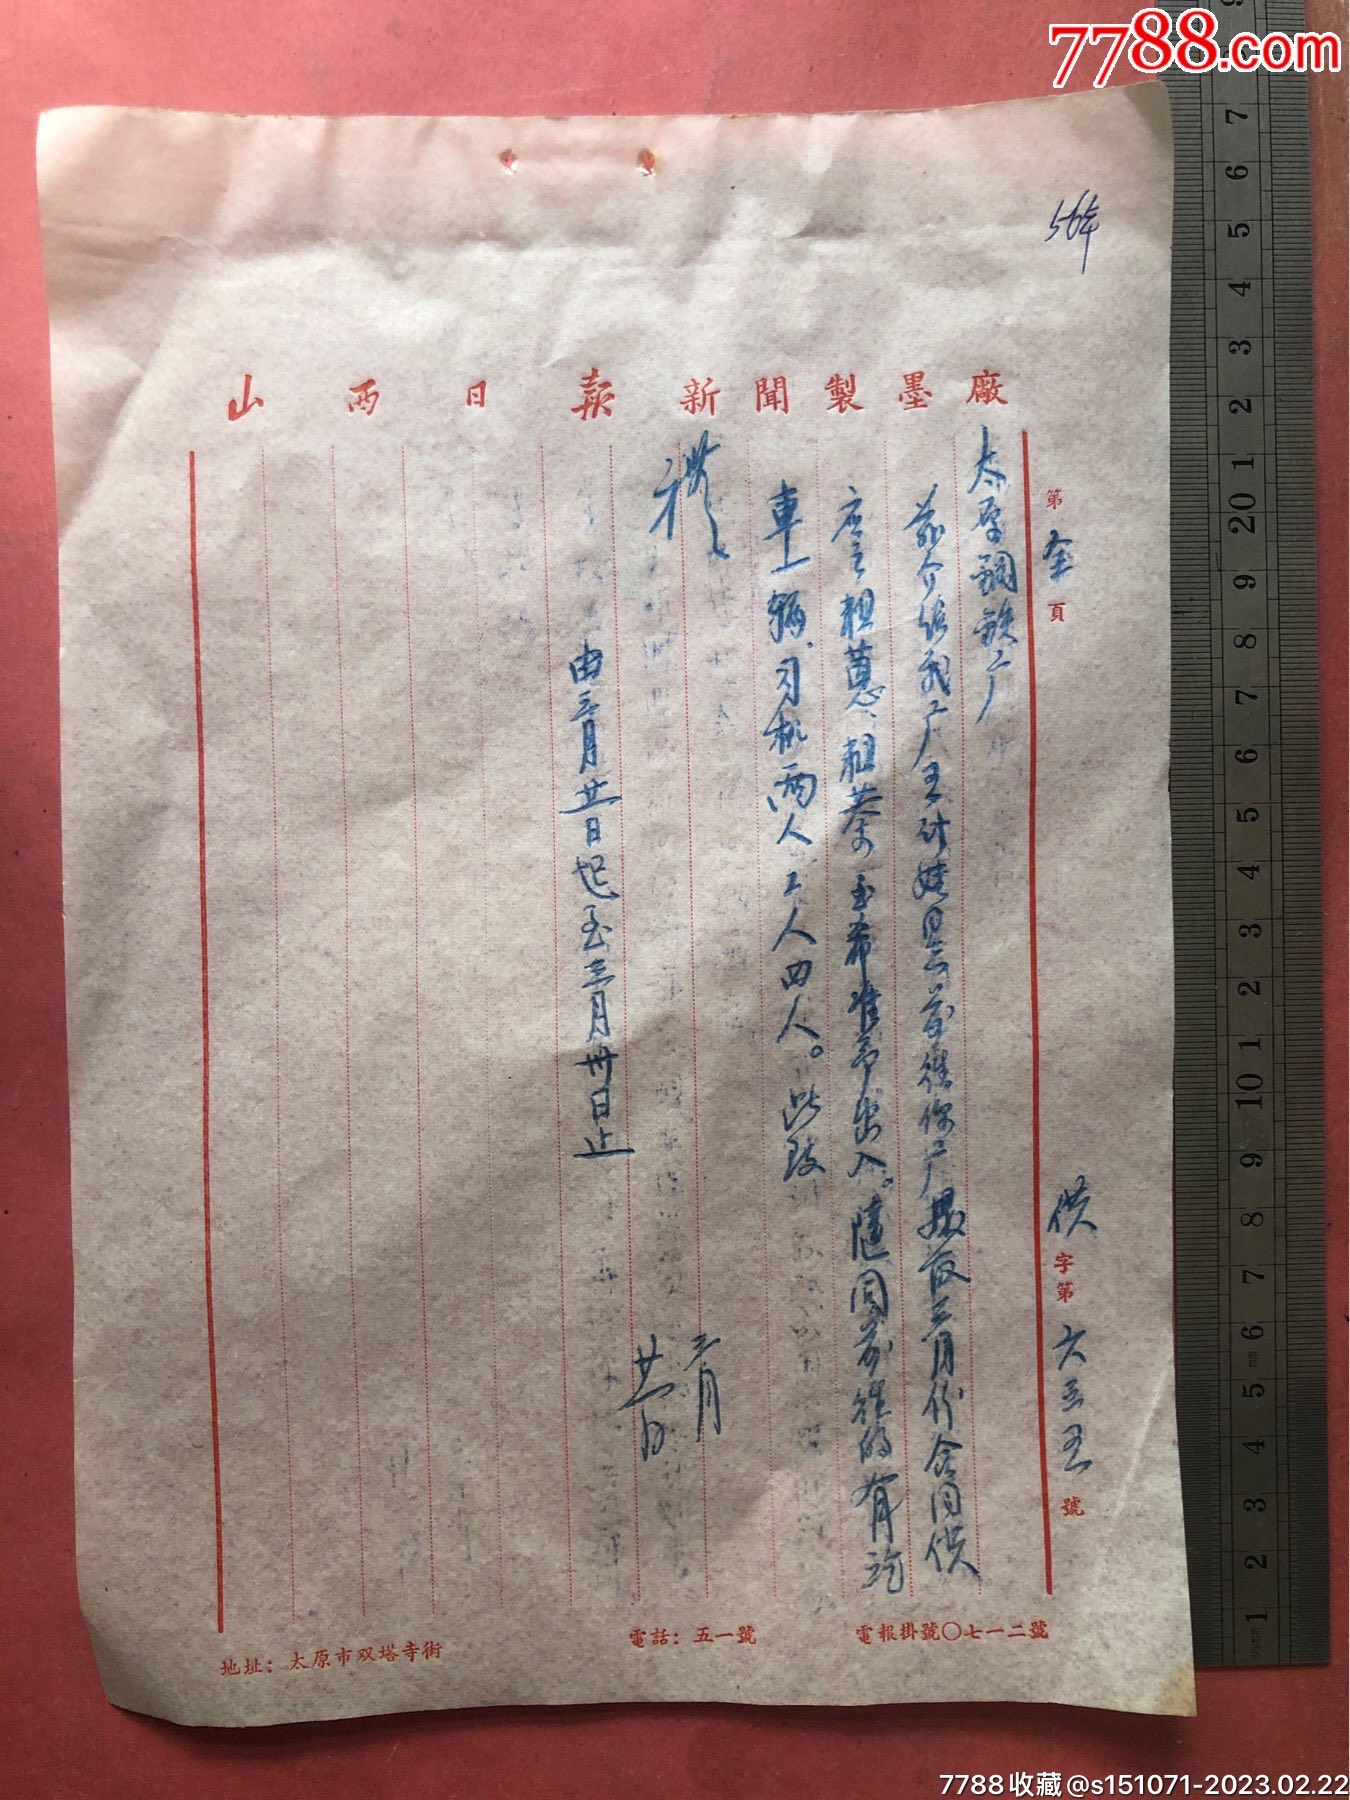 7788.com
56年
山西日報新聞製墨廠
第全頁
供字第六三五號
太原鋼鉄厂
兹介绍我厂王計娃同志前往你厂提取三月份合同供
应之粗蒽、粗萘、至希准予出入。随同前往的有汽
車一辆、司机两人工人四人。此致
礼
三月
廿日
由三月廿日起至三月卅日止
地址：太原市双塔寺街
電話：五一號
電報掛號〇七一二號
7788收藏@s151071-2023.02.22